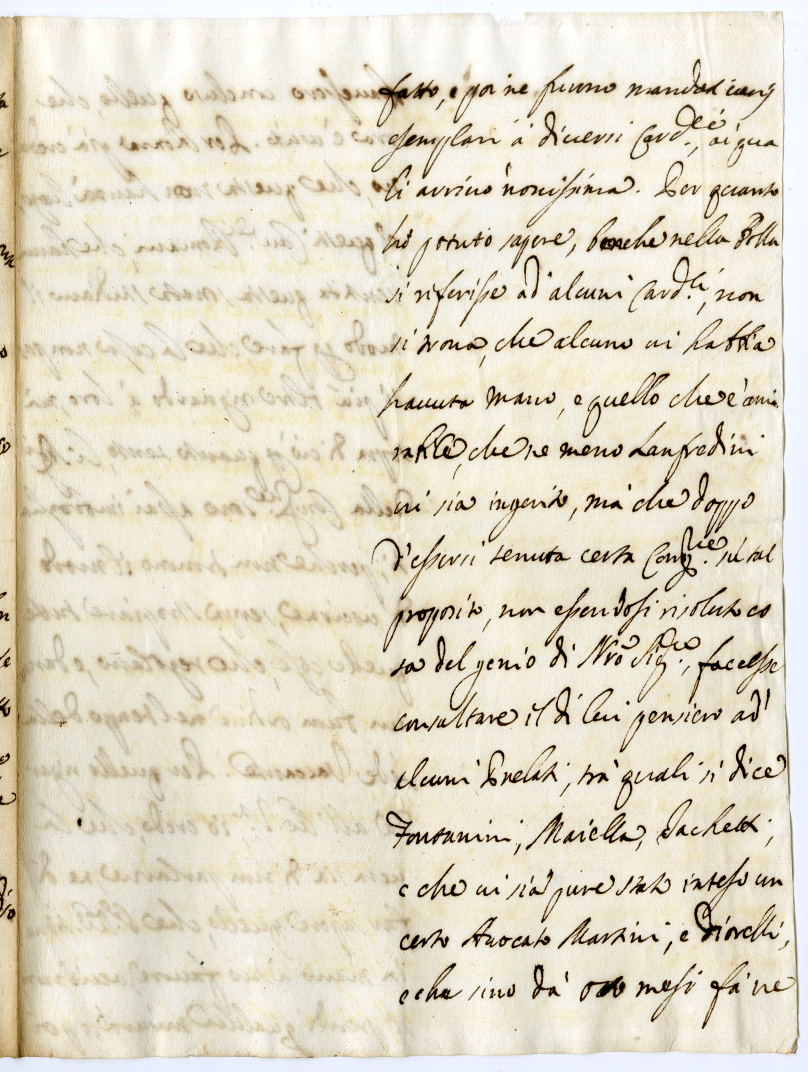 fatto, e poi ne furno mandati
essemplari à diversi Card.li, ai qua
li arrivò novissima. Per quanto
hò potuto sapere, benche nella Bolla
si riferisse ad' alcuni Card.li, non
si trova, che alcuno vi habbia
havuta mano, e quello che è ami
rabile, che ne meno Lanfredini
vi sia ingerito, mà che doppo
d'essersi tenuta certa Cong.ne sù tal
proposito, non essendosi risoluto co
sa del genio di Nrõ Sig.re, facesse
consultare il di lui pensiero ad'
alcuni Prelati, trà quali si dice
Fontanini, Maiella, Sachetti,
e che vi sia pure stato inteso un
certo Avocato Martini, e
e che sino da otto mesi fà ne